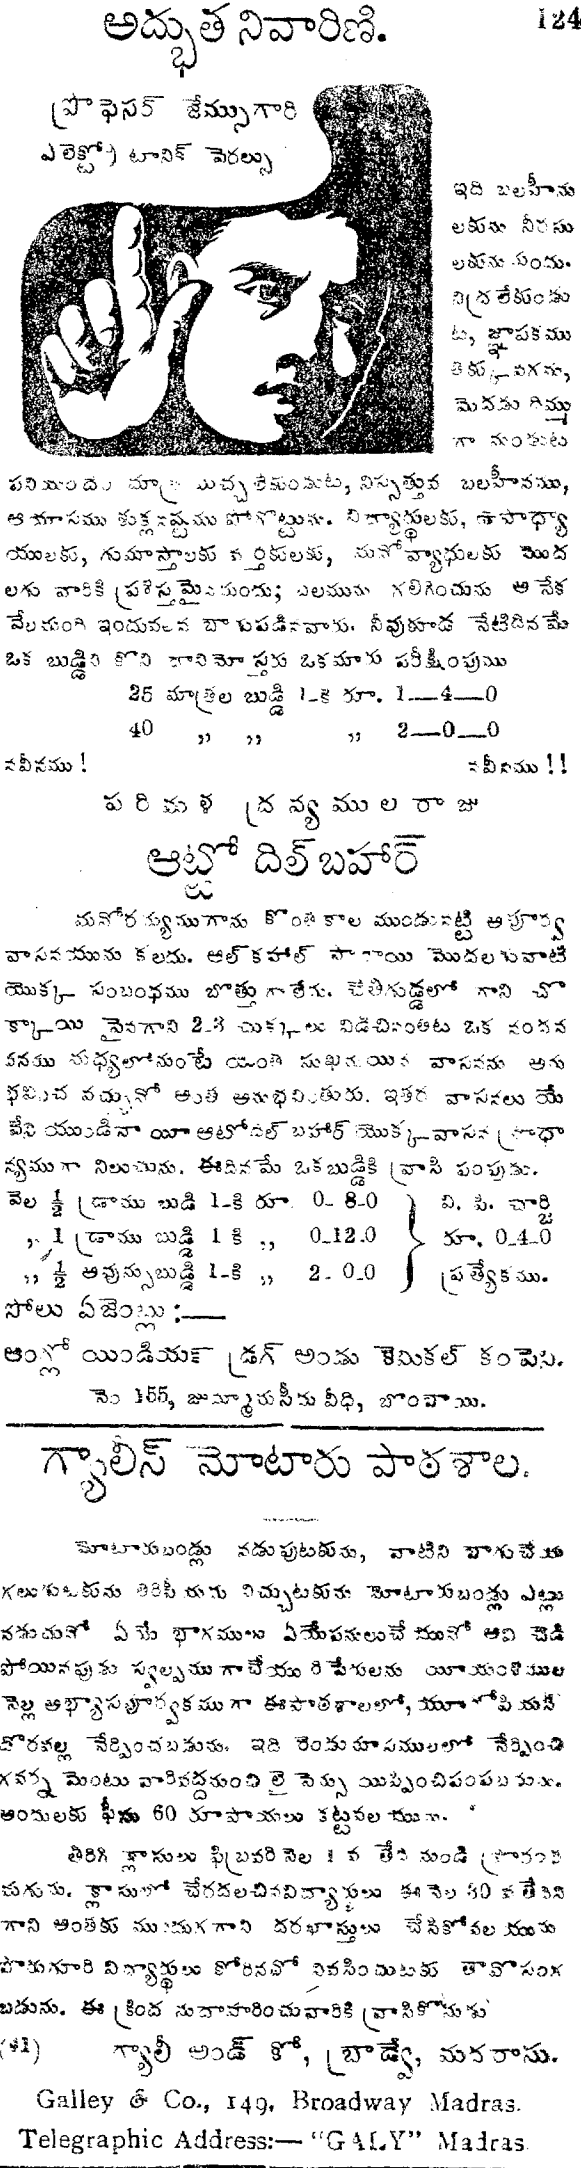 అద్భుత నివారిణి.
124
ప్రొఫెసర్ జేమ్సుగారి
ఎలెక్ట్రో టానిక్ పెరల్సు
ఇది బలహీను
లకును నీరసు
లకును మందు.
నిద్రలేకుండు
ట, జ్ఞాపకము
తిక్క
మెదడు దిమ్ము
గా నుండుట
నిస్సత్తువ బలహీనము,
ఆయాసము శుక్లనష్టము పోగొట్టును. విద్యార్థులకు, ఉపాధ్యా
యులకు, గుమాస్తాలకు వర్తకులకు, మనోవ్యాధులకు మొద
లగు వారికి ప్రశస్తమైనమందు; బలమును గలిగించును అనేక
వేలమంది ఇందువలన బాగుపడినవారు. నీవుకూడ నేటిదినమే
ఒక బుడ్డిని కొని ఒకమారు పరీక్షింపుము
25 మాత్రల బుడ్డి 1-కి రూ. 1—4—0
40 ,, ,, ,, 2—0—0
నవీనము !
నవీనము !!
పరిమళ ద్రవ్యముల రాజు
ఆట్టో దిల్ బహార్
మనోరమ్యముగాను కొంతకాల ముండునట్టి అపూర్వ
వాసనయును కలదు. ఆల్ కహాల్ సారాయి మొదలగువాటి
యొక్క సంబంధము బొత్తుగాలేదు. చేతిగుడ్డలో గాని చొ
క్కాయి పైనగాని 2-3 చుక్కలు విడిచినంతట ఒక నందన
వనము మధ్యలోనుంటే యెంతి సుఖమయిన వాసనను అను
భవించ వచ్చునో అంత అనుభవింతురు. ఇతర వాసనలు యే
వేని యుండినా యీ ఆటోదిల్ బహార్ యొక్క వాసన ప్రాధా
న్యముగా నిలుచును. ఈదినమే ఒకబుడ్డికి వ్రాసి పంపుడు.
వెల ½ డ్రాము బుడి 1-కి రూ. 0-8-0 } వి. పి. చార్జి
,, 1 డ్రాము బుడ్డి 1 కి ,, 0-12-0 } రూ. 0-4-0
,, ½ అవున్సుబుడ్డి 1-కి ,, 2-0-0 } ప్రత్యేకము.
సోలు ఏజెంట్లు :—
ఆంగ్లో యిండియన్ డ్రగ్ అండు కెమికల్ కంపెని.
నెం 155, జుమ్మామసీదు వీధి, బొంబాయి.
గ్యాలీస్ మోటారు పాఠశాల.
మోటారుబండ్లు నడుపుటకును, వాటిని బాగుచేయ
గలుగుటకును తరిఫీయదు నిచ్చుటకును మోటారుబండ్లు ఎట్లు
నడుచునో ఏ యే భాగములు ఏయేపనులుచేయునో అవి చెడి
పోయినపుడు స్వల్పముగాచేయు రిపేరులను
నెల్ల అభ్యాసపూర్వకముగా ఈపాఠశాలలో, యూరోపియన్
దొరవల్ల నేర్పించబడును. ఇది రెండుమాసములలో నేర్పించి
గవర్న మెంటు వారివద్దనుంచి లై సెన్సు యిప్పించిపంపబడును.
అందులకు ఫీజు 60 రూపాయలు కట్టవలయును.
తిరిగి క్లాసులు ఫిబ్రవరి నెల 1 వ తేది నుండి ప్రారంభ
మగును. క్లాసులో చేరదలచినవిద్యార్థులు ఈ నెల 30 వ తేదిని
గాని అంతకు ముందుగగాని దరఖాస్తులు చేసికోవలయును
పొరుగూరి విద్యార్థులు కోరినచో నివసించుటకు తావొసంగ
బడును. ఈ క్రింద నుదాహరించువారికి వ్రాసికొనుడు
(41) గ్యాలీ అండ్ కో, బ్రాడ్వే, మదరాసు.
Galley & Co., 149, Broadway Madras.
Telegraphic Address:— "GALY" Madras.